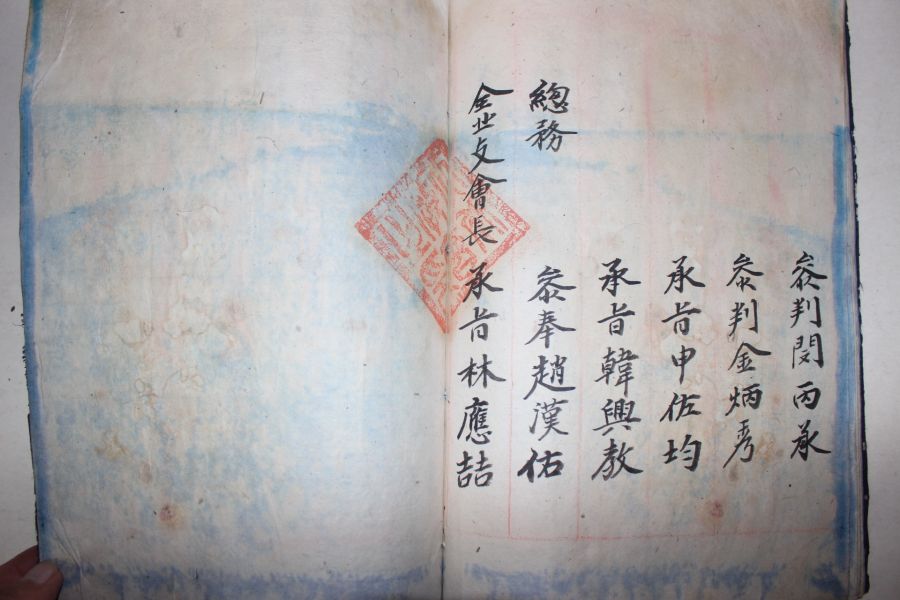 叅判閔丙承
叅判金炳秀
承旨申佐均
承旨韓興教
總務 叅奉趙漢佑
會長 承旨林應喆